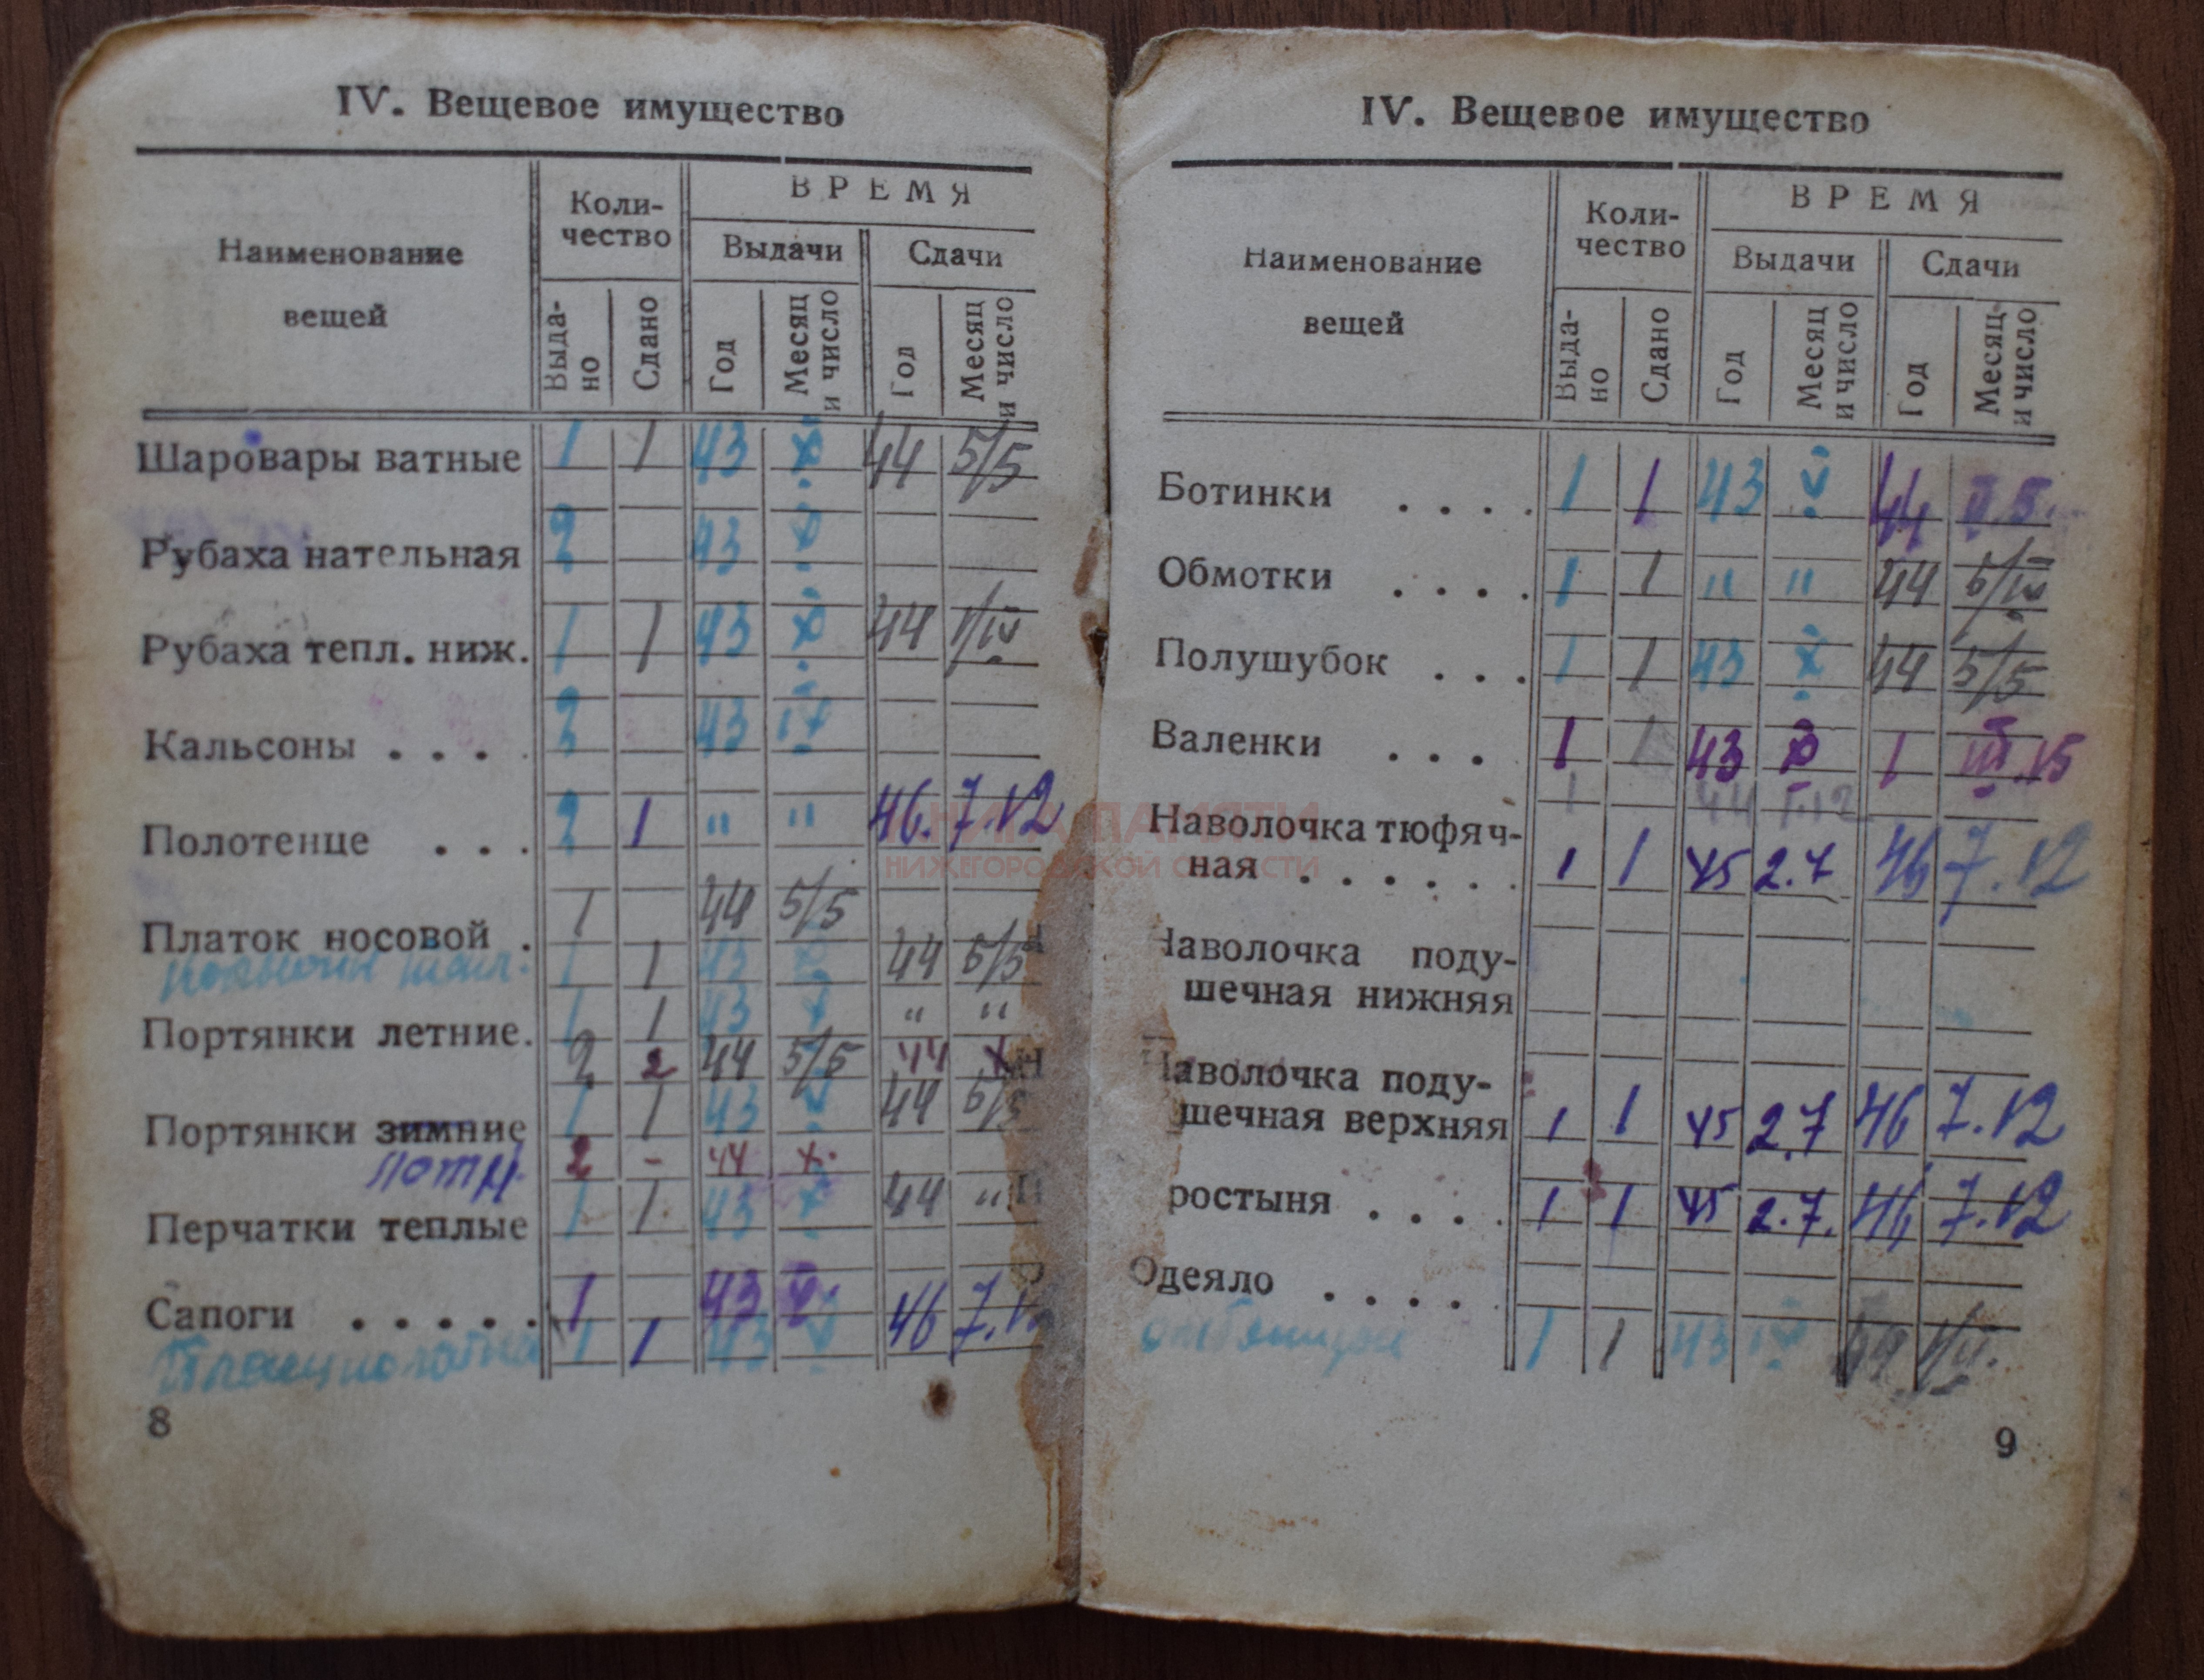 IV. Вещевое имущество
Наименование вещей
Коли-
чество
ВРЕМЯ
Выдачи
Сдачи
Выда-
но
Сдано
Год
Месяц
и число
Год
Месяц
и число
Шаровары ватные 1 1 43 X 44 5/5
Рубаха нательная 2 43 X
Рубаха тепл. ниж. 1 1 43 X 44 1/IV
Кальсоны . . . . 2 43 IX
Полотенце . . . 2 1 " " 46. 7.12
1 44 5/5
Платок носовой .
1 1 43 44 5/5
Портянки летние. 1 1 43 X " "
2 2 44 5/5 44 X
Портянки зимние 1 1 43 V 44 5/5
2 - 44 X.
Перчатки теплые 1 1 43 X 44 "
Сапоги . . . . . 1 43
1 1 43 V 46 7.12
8
IV. Вещевое имущество
Наименование
вещей
Коли-
чество
ВРЕМЯ
Выдачи
Сдачи
Выда-
но
Сдано
Год
Месяц
и число
Год
Месяц
и число
Ботинки . . . . 1 1 43 V 44
Обмотки . . . . 1 1 " " 44 5/IV
Полушубок . . . 1 1 43 X 44 5/5
Валенки . . . 1 1 43 X 1 III.15
1 44 I.12
Наволочка тюфяч-
ная . . . . . . 1 1 45 2.7 46 7.12
Наволочка поду-
шечная нижняя
Наволочка поду-
шечная верхняя 1 1 45 2.7 46 7.12
ростыня . . . . 1 1 45 2.7. 46 7.12
Одеяло . . . .
1 1 43 IV 44
9
КНИГА ПАМЯТИ
НИЖЕГОРОДСКОЙ ОБЛАСТИ